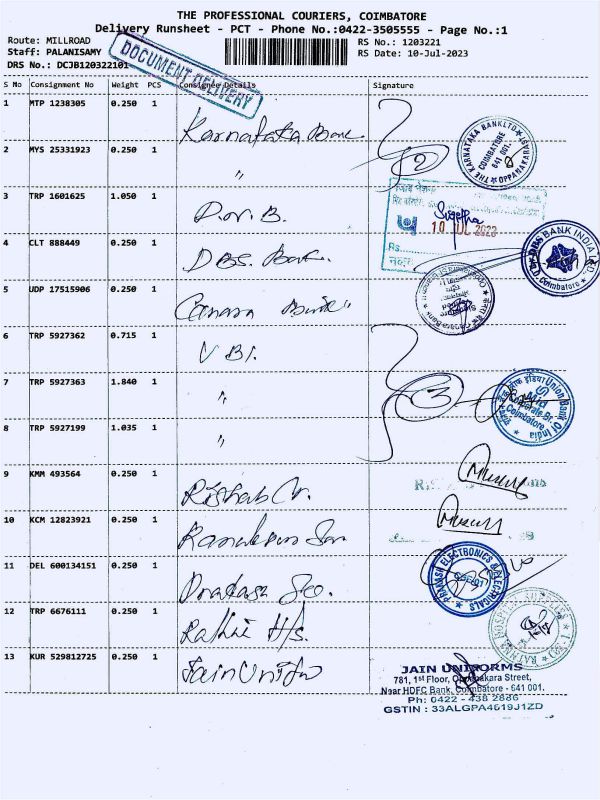 THE PROFESSIONAL COURIERS, COIMBATORE
Delivery Runsheet - PCT - Phone No.:0422-3505555 - Page No.:1
Route: MILLROAD
Staff: PALANISAMY
DRS No.: DCJB120322101
RS No.: 1203221
RS Date: 10-Jul-2023
DOCUMENT DELIVERY
S No Consignment No Weight PCS Consignee Details Signature
1 MTP 1238305 0.250 1 Karnataka Bank
THE KARNATAKA BANK LTD.
COIMBATORE
641 001.
OPPANAKARA ST
2 MYS 25331923 0.250 1 " 2
3 TRP 1601625 1.050 1 P.N.B.
10 JUL 2023
Rs.
4 CLT 888449 0.250 1 DBS. Bank.
DBS BANK INDIA LTD
Coimbatore
5 UDP 17515906 0.250 1 Canara Bank
6 TRP 5927362 0.715 1 UBI.
7 TRP 5927363 1.840 1 " 3
Union Bank Of India
Corporate Br.
Coimbatore
8 TRP 5927199 1.035 1 "
9 KMM 493564 0.250 1
10 KCM 12823921 0.250 1
11 DEL 600134151 0.250 1
PRAKASH ELECTRONICS & ELECTRICALS
12 TRP 6676111 0.250 1
13 KUR 529812725 0.250 1 Jain Uniform
JAIN UNIFORMS
781, 1st Floor, Oppanakara Street,
Near HDFC Bank, Coimbatore - 641 001.
Ph: 0422 - 438 2886
GSTIN : 33ALGPA4619J1ZD